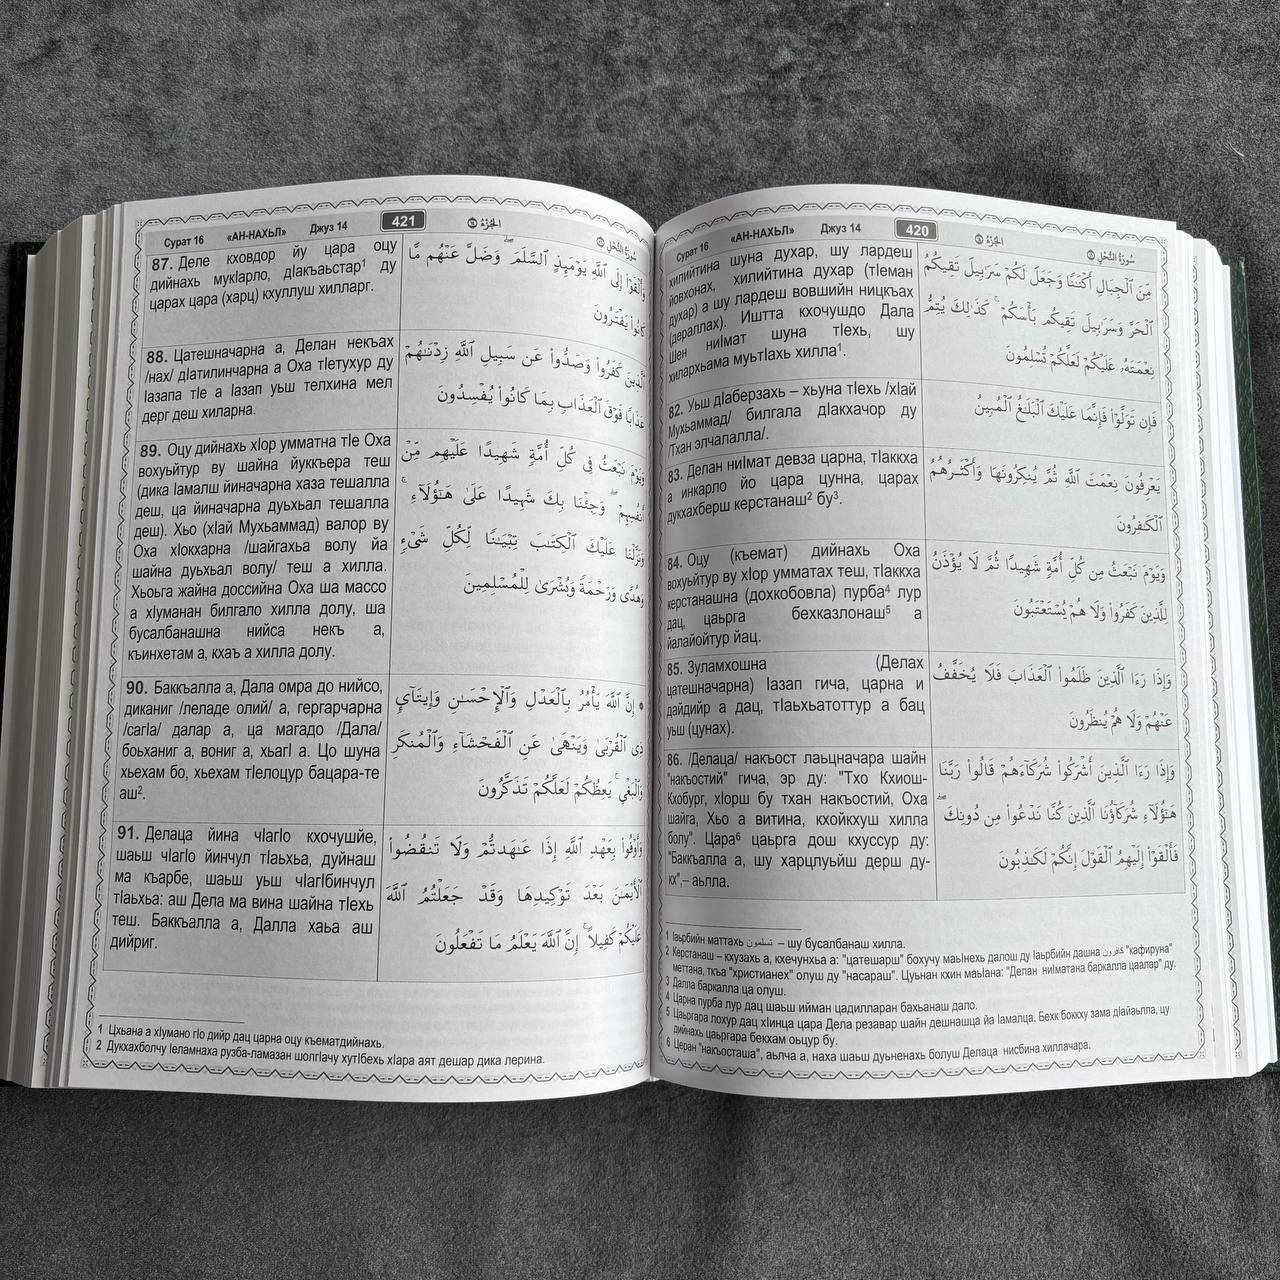 Сурат 16 «АН-НАХЬЛ» Джуз 14 420 الجُزْءُ ١٤ سُورَةُ النَّحْلِ ١٦
хилийтина шуна духар, шу лардеш
йовхонах, хилийтина духар (тӀеман
духар) а шу лардеш вовшийн ницкъах
(дераллах). Иштта кхочушдо Дала
Шен ниӀмат шуна тӀехь, шу
хилархьама муьтӀахь хилла¹.
مِّنَ ٱلْجِبَالِ أَكْنَٰنًا وَجَعَلَ لَكُمْ سَرَٰبِيلَ تَقِيكُمُ
ٱلْحَرَّ وَسَرَٰبِيلَ تَقِيكُم بَأْسَكُمْ ۚ كَذَٰلِكَ يُتِمُّ
نِعْمَتَهُۥ عَلَيْكُمْ لَعَلَّكُمْ تُسْلِمُونَ
82. Уьш дӀаберзахь – хьуна тӀехь /хӀай
Мухьаммад/ билгала дӀакхачор ду
/Тхан элчалалла/.
فَإِن تَوَلَّوْا۟ فَإِنَّمَا عَلَيْكَ ٱلْبَلَٰغُ ٱلْمُبِينُ
83. Делан ниӀмат девза царна, тӀаккха
а инкарло йо цара цунна, царах
дукхахберш керстанаш² бу³.
يَعْرِفُونَ نِعْمَتَ ٱللَّهِ ثُمَّ يُنكِرُونَهَا وَأَكْثَرُهُمُ
ٱلْكَٰفِرُونَ
84. Оцу (къемат) дийнахь Оха
вохуьйтур ву хӀор умматах теш, тӀаккха
керстанашна (дохкобовла) пурба⁴ лур
дац, цаьрга бехказлонаш⁵ а
йалайойтур йац.
وَيَوْمَ نَبْعَثُ مِن كُلِّ أُمَّةٍ شَهِيدًا ثُمَّ لَا يُؤْذَنُ
لِلَّذِينَ كَفَرُوا۟ وَلَا هُمْ يُسْتَعْتَبُونَ
85. Зуламхошна (Делах
цатешначарна) Ӏазап гича, царна и
дайдийр а дац, тӀаьхьатоттур а бац
уьш (цунах).
وَإِذَا رَءَا ٱلَّذِينَ ظَلَمُوا۟ ٱلْعَذَابَ فَلَا يُخَفَّفُ
عَنْهُمْ وَلَا هُمْ يُنظَرُونَ
86. /Делаца/ накъост лаьцначара шайн
"накъостий" гича, эр ду: "Тхо Кхиош-
Кхобург, хӀорш бу тхан накъостий, Оха
шайга, Хьо а витина, кхойкхуш хилла
болу". Цара⁶ цаьрга дош кхуссур ду:
"Баккъалла а, шу харцлуьйш дерш ду-
кх",– аьлла.
وَإِذَا رَءَا ٱلَّذِينَ أَشْرَكُوا۟ شُرَكَآءَهُمْ قَالُوا۟ رَبَّنَا
هَٰٓؤُلَآءِ شُرَكَآؤُنَا ٱلَّذِينَ كُنَّا نَدْعُوا۟ مِن دُونِكَ ۖ
فَأَلْقَوْا۟ إِلَيْهِمُ ٱلْقَوْلَ إِنَّكُمْ لَكَٰذِبُونَ
1 Ӏаьрбийн маттахь تسلمون – шу бусалбанаш хилла.
2 Керстанаш – кхузахь а, кхечунхьа а: "цатешарш" бохучу маьӀнехь далош ду Ӏаьрбийн дашна كافرون "кафируна"
меттана, ткъа "христианех" олуш ду "насараш". Цуьнан кхин маьӀана: "Делан ниӀматана баркалла цаалар" ду.
3 Далла баркалла ца олуш.
4 Царна пурба лур дац шаьш ийман цадилларан бахьанаш дало.
5 Цаьргара лохур дац хӀинца цара Дела резавар шайн дешнашца йа Ӏамалца. Бехк боккху зама дӀайаьлла, цу
дийнахь цаьргара бекхам оьцур бу.
6 Церан "накъосташа", аьлча а, наха шаьш дуьненахь болуш Делаца нисбина хиллачара.
Сурат 16 «АН-НАХЬЛ» Джуз 14 421 الجُزْءُ ١٤ سُورَةُ النَّحْلِ ١٦
87. Деле кховдор йу цара оцу
дийнахь мукӀарло, дӀакъаьстар¹ ду
царах цара (харц) кхуллуш хилларг.
وَأَلْقَوْا۟ إِلَى ٱللَّهِ يَوْمَئِذٍ ٱلسَّلَمَ ۖ وَضَلَّ عَنْهُم مَّا
كَانُوا۟ يَفْتَرُونَ
88. Цатешначарна а, Делан некъах
/нах/ дӀатилинчарна а Оха тӀетухур ду
Ӏазапа тӀе а Ӏазап уьш телхина мел
дерг деш хиларна.
ٱلَّذِينَ كَفَرُوا۟ وَصَدُّوا۟ عَن سَبِيلِ ٱللَّهِ زِدْنَٰهُمْ
عَذَابًا فَوْقَ ٱلْعَذَابِ بِمَا كَانُوا۟ يُفْسِدُونَ
89. Оцу дийнахь хӀор умматна тӀе Оха
вохуьйтур ву шайна йуккъера теш
(дика Ӏамалш йиначарна хаза тешалла
деш, ца йиначарна дуьхьал тешалла
деш). Хьо (хӀай Мухьаммад) валор ву
Оха хӀокхарна /шайгахьа волу йа
шайна дуьхьал волу/ теш а хилла.
Хьоьга жайна доссийна Оха ша массо
а хӀуманан билгало хилла долу, ша
бусалбанашна нийса некъ а,
къинхетам а, кхаъ а хилла долу.
وَيَوْمَ نَبْعَثُ فِى كُلِّ أُمَّةٍ شَهِيدًا عَلَيْهِم مِّنْ
أَنفُسِهِمْ ۖ وَجِئْنَا بِكَ شَهِيدًا عَلَىٰ هَٰٓؤُلَآءِ ۚ
وَنَزَّلْنَا عَلَيْكَ ٱلْكِتَٰبَ تِبْيَٰنًا لِّكُلِّ شَىْءٍ
وَهُدًى وَرَحْمَةً وَبُشْرَىٰ لِلْمُسْلِمِينَ
90. Баккъалла а, Дала омра до нийсо,
диканиг /леладе олий/ а, гергарчарна
/сагӀа/ далар а, ца магадо /Дала/
боьханиг а, вониг а, хьагӀ а. Цо шуна
хьехам бо, хьехам тӀелоцур бацара-те
аш².
۞ إِنَّ ٱللَّهَ يَأْمُرُ بِٱلْعَدْلِ وَٱلْإِحْسَٰنِ وَإِيتَآئِ
ذِى ٱلْقُرْبَىٰ وَيَنْهَىٰ عَنِ ٱلْفَحْشَآءِ وَٱلْمُنكَرِ
وَٱلْبَغْىِ ۚ يَعِظُكُمْ لَعَلَّكُمْ تَذَكَّرُونَ
91. Делаца йина чӀагӀо кхочушйе,
шаьш чӀагӀо йинчул тӀаьхьа, дуйнаш
ма къарбе, шаьш уьш чӀагӀбинчул
тӀаьхьа: аш Дела ма вина шайна тӀехь
теш. Баккъалла а, Далла хаьа аш
дийриг.
وَأَوْفُوا۟ بِعَهْدِ ٱللَّهِ إِذَا عَٰهَدتُّمْ وَلَا تَنقُضُوا۟
ٱلْأَيْمَٰنَ بَعْدَ تَوْكِيدِهَا وَقَدْ جَعَلْتُمُ ٱللَّهَ
عَلَيْكُمْ كَفِيلًا ۚ إِنَّ ٱللَّهَ يَعْلَمُ مَا تَفْعَلُونَ
1 Цхьана а хӀумано гӀо дийр дац царна оцу къематдийнахь.
2 Дукхахболчу Ӏеламнаха рузба-ламазан шолгӀачу хутӀбехь хӀара аят дешар дика лерина.